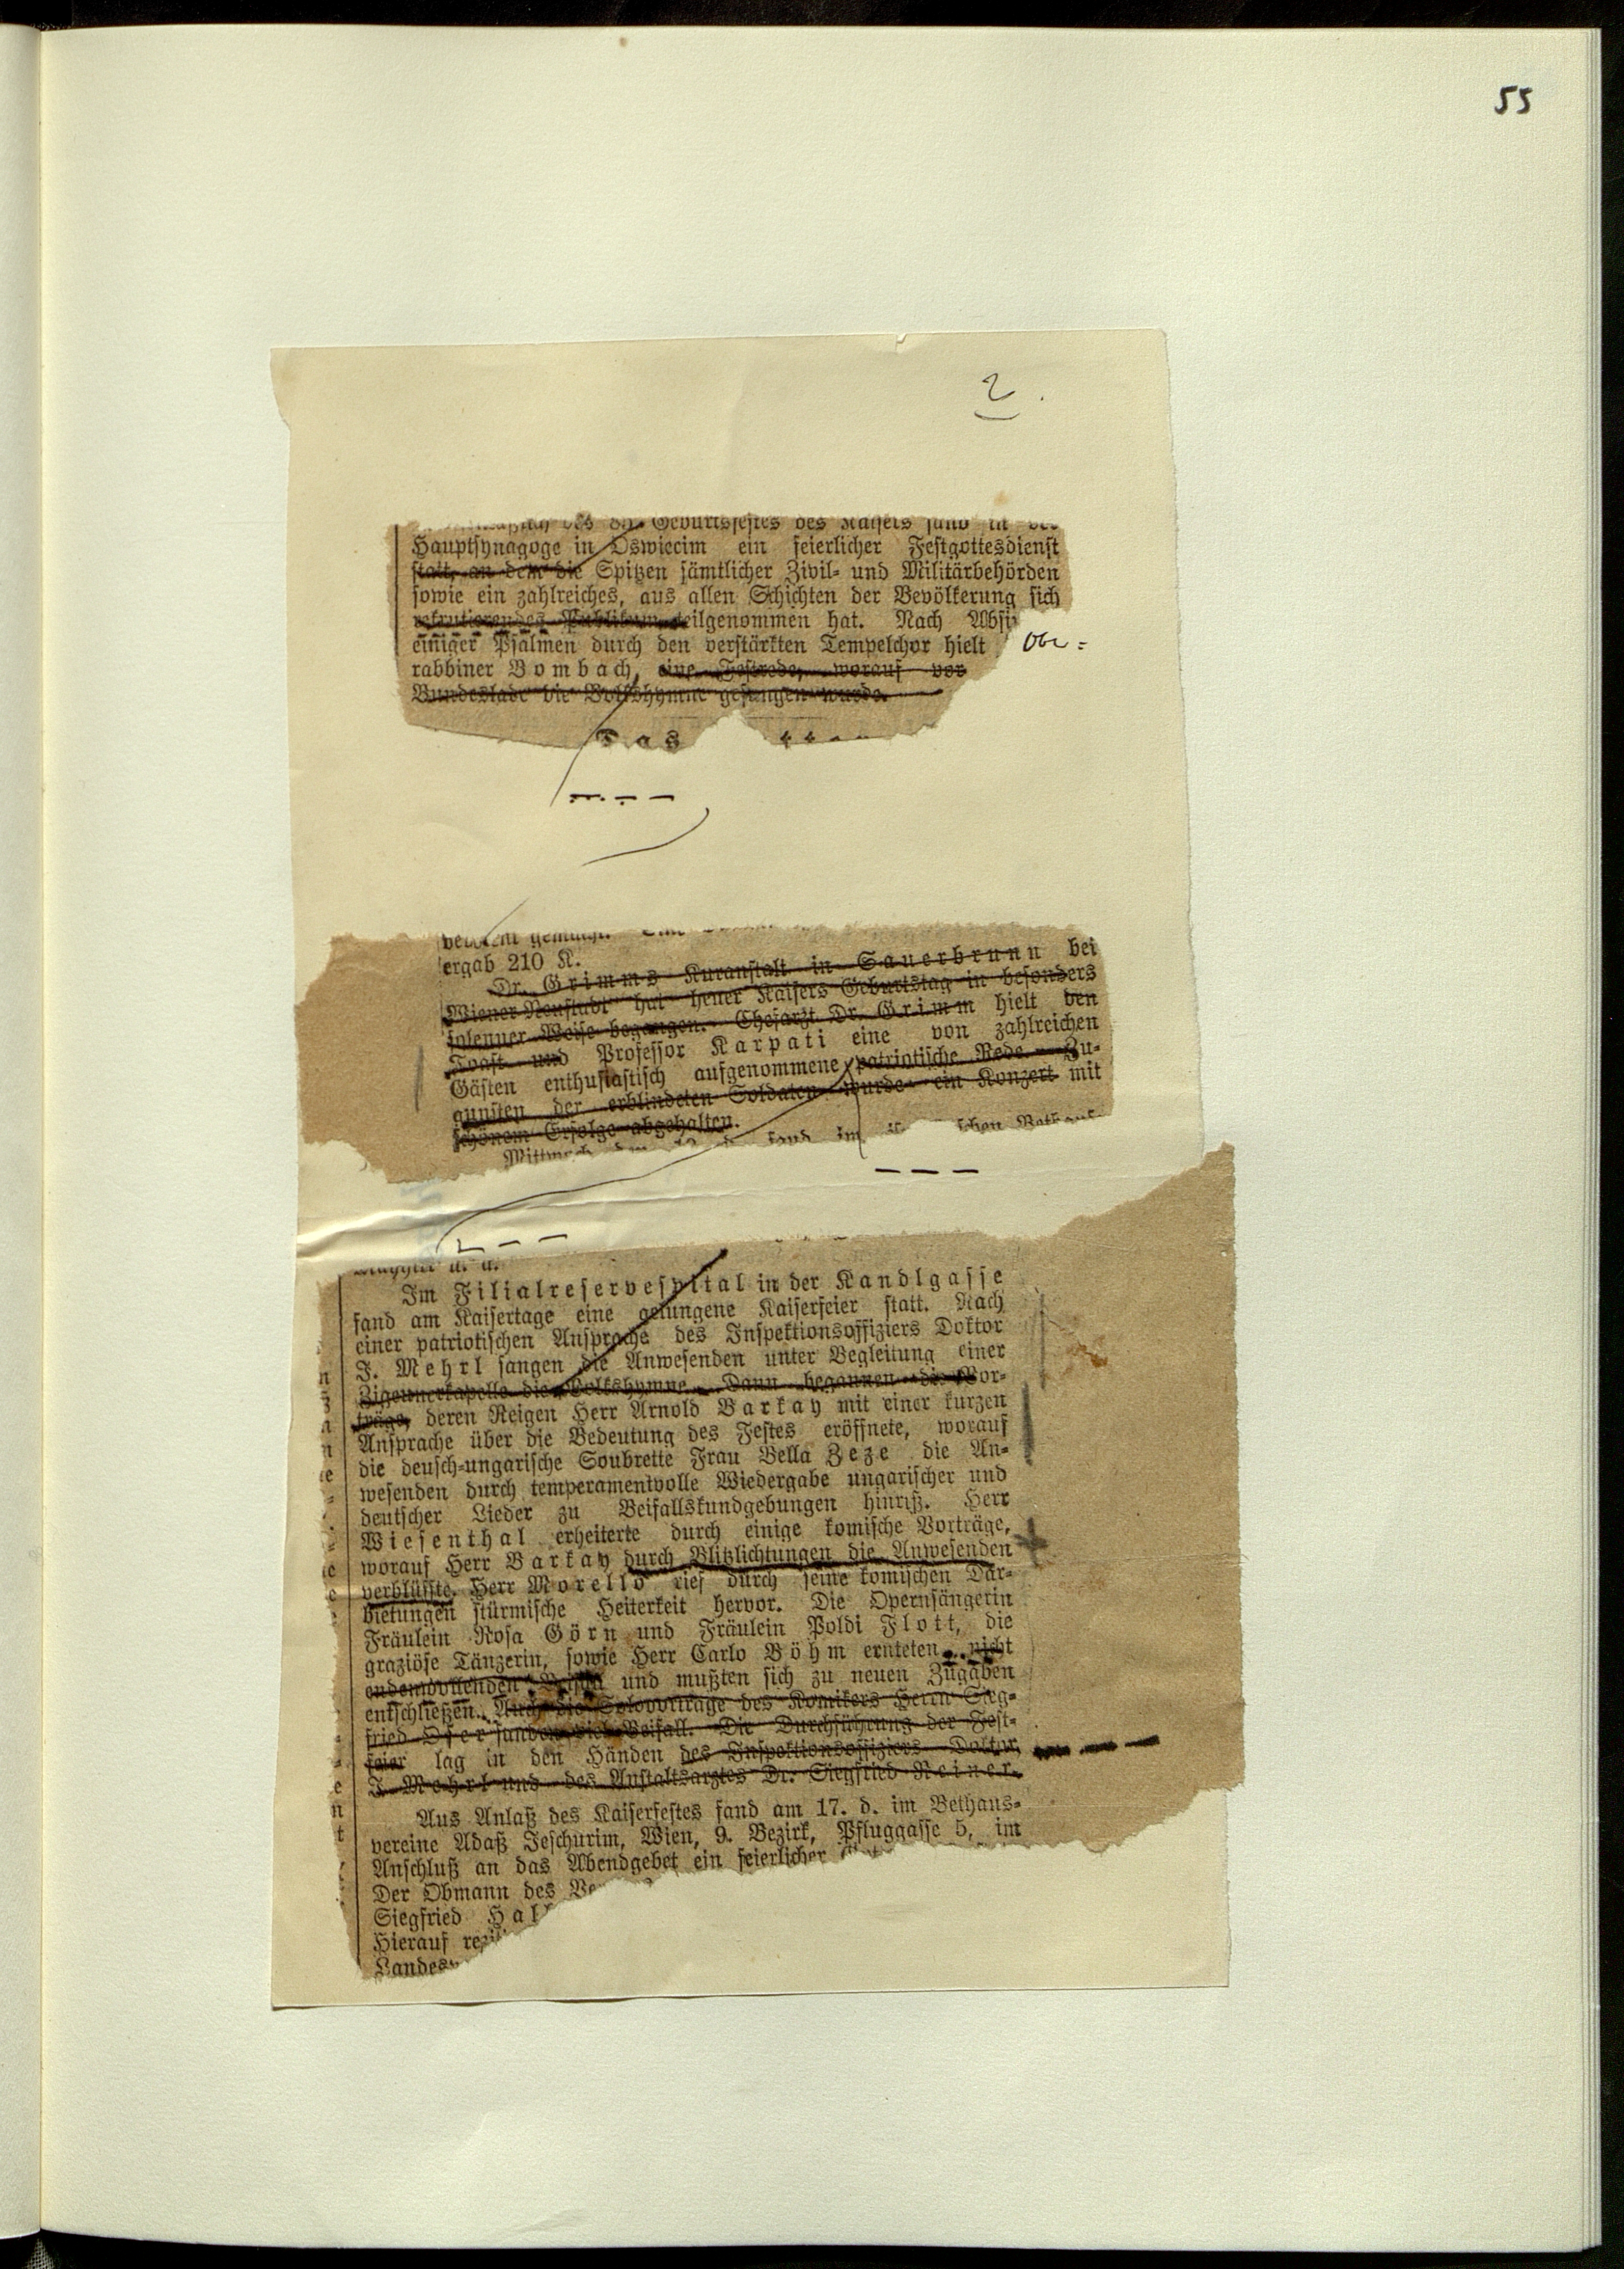 55
2.
des 85. Geburtsfestes des Kaisers fand in der
Hauptsynagoge in Oswiecim ein feierlicher Festgottesdienst
statt, an dem die Spitzen sämtlicher Zivil- und Militärbehörden
sowie ein zahlreiches, aus allen Schichten der Bevölkerung sich
rekrutierendes Publikum teilgenommen hat. Nach Absi
einiger Psalmen durch den verstärkten Tempelchor hielt Obe=
rabbiner Bombach, eine Festrede, worauf vor
Bundeslade die Volkshymne gesungen wurde.
Das
ergab 210 K.
Dr. Grimms Kuranstalt in Sauerbrunn bei
Wiener-Neustadt hat heuer Kaisers Geburtstag in besonders
solenner Weise begangen. Chefarzt Dr. Grimm hielt den
Toast und Professor Karpati eine von zahlreichen
Gästen enthusiastisch aufgenommene patriotische Rede. Zu-
gunsten der erblindeten Soldaten wurde ein Konzert mit
schönem Erfolge abgehalten.
Mittwoch den fand im
Im Filialreservespital in der Kandlgasse
fand am Kaisertage eine gelungene Kaiserfeier statt. Nach
einer patriotischen Ansprache des Inspektionsoffiziers Doktor
J. Mehrl sangen die Anwesenden unter Begleitung einer
Zigeunerkapelle die Volkshymne. Dann begannen die Vor-
träge, deren Reigen Herr Arnold Barkay mit einer kurzen
Ansprache über die Bedeutung des Festes eröffnete, worauf
die deusch-ungarische Soubrette Frau Bella Zeze die An-
wesenden durch temperamentvolle Wiedergabe ungarischer und
deutscher Lieder zu Beifallskundgebungen hinriß. Herr
Wiesenthal erheiterte durch einige komische Vorträge,
worauf Herr Barkay durch Blitzlichtungen die Anwesenden
verblüffte. Herr Morello rief durch seine komischen Dar-
bietungen stürmische Heiterkeit hervor. Die Opernsängerin
Fräulein Rosa Görn und Fräulein Poldi Flott, die
graziöse Tänzerin, sowie Herr Carlo Böhm ernteten nicht
endenwollenden Beifall und mußten sich zu neuen Zugaben
entschließen. Auch die Solovorträge des Komikers Herrn Sieg-
fried Ofer fanden viel Beifall. Die Durchführung der Fest-
feier lag in den Händen des Inspektionsoffiziers Doktor
J. Mehrl und des Anstaltsarztes Dr. Siegfried Reiner.
Aus Anlaß des Kaiserfestes fand am 17. d. im Bethaus-
vereine Adaß Jeschurim, Wien, 9. Bezirk, Pfluggasse 5, im
Anschluß an das Abendgebet ein feierlicher
Der Obmann des
Siegfried
Hierauf